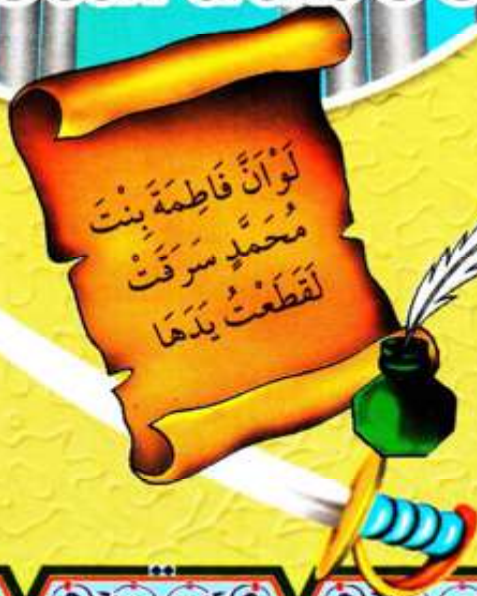 لَوْاَنَّ فَاطِمَةَ بِنْتَ
مُحَمَّدٍ سَرَقَتْ
لَقَطَعْتُ يَدَهَا